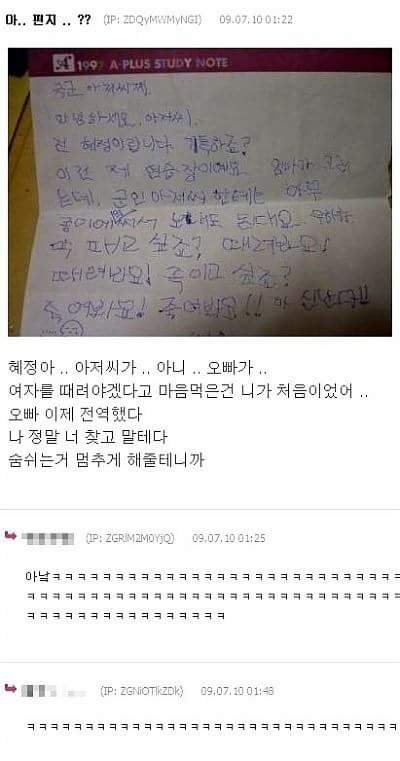 아.. 편지 .. ?? (IP: ZDQyMWMyNGI) 09.07.10 01:22
A+ 1997 A-PLUS STUDY NOTE
국군 아저씨께.
안녕하세요. 아저씨.
전 혜정이랍니다. 기특하죠?
이건 제 연습장이에요. 엄마가
는데, 군인 아저씨 한테는 아무
종이에 써서 보내도 된대요.
막 패고 싶죠? 때려봐요!
때려봐요! 죽이고 싶죠?
죽여봐요! 죽여봐요!! 아 신난다!!
혜정아 .. 아저씨가 .. 아니 .. 오빠가 ..
여자를 때려야겠다고 마음먹은건 니가 처음이었어 ..
오빠 이제 전역했다
나 정말 너 찾고 말테다
숨쉬는거 멈추게 해줄테니까
(IP: ZGRlM2M0YjQ) 09.07.10 01:25
아낰ㅋㅋㅋㅋㅋㅋㅋㅋㅋㅋㅋㅋㅋㅋㅋㅋㅋㅋㅋㅋㅋㅋㅋㅋㅋㅋㅋ
ㅋㅋㅋㅋㅋㅋㅋㅋㅋㅋㅋㅋㅋㅋㅋㅋㅋㅋㅋㅋㅋㅋㅋㅋㅋㅋㅋㅋㅋ
ㅋㅋㅋㅋㅋㅋㅋㅋㅋㅋㅋㅋㅋㅋㅋㅋ
(IP: ZGNiOTlkZDk) 09.07.10 01:48
ㅋㅋㅋㅋㅋㅋㅋㅋㅋㅋㅋㅋㅋㅋㅋㅋㅋㅋㅋㅋㅋㅋㅋㅋㅋㅋㅋㅋㅋ